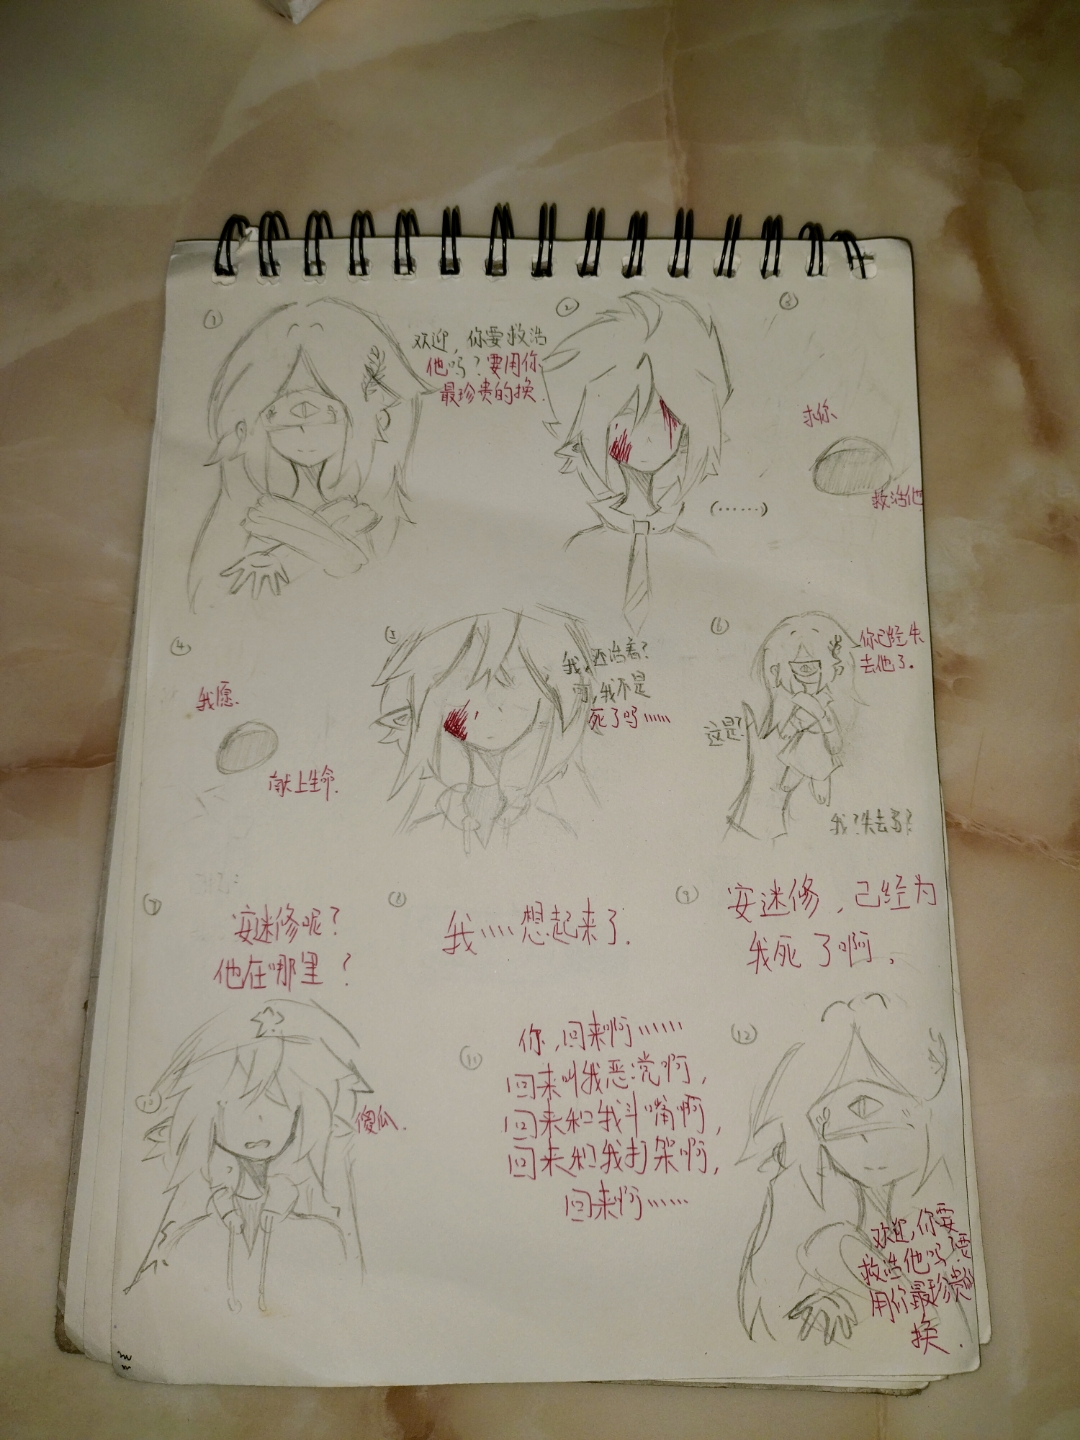 ①
欢迎，你要救活
他吗？要用你
最珍贵的换．
②
(……)
③
求你、
救活他
④
我愿．
献上生命．
⑤
我，还活着？
可，我不是
死了吗……
⑥
你已经失
去他了．
这是？
我？失去了？
⑦
安迷修呢？
他在哪里？
⑧
我……想起来了．
⑨
安迷修，已经为
我死了啊，
⑩
傻瓜．
⑪
你，回来啊……
回来叫我恶党啊，
回来和我斗嘴啊，
回来和我打架啊，
回来啊……
⑫
欢迎，你要
救活他吗？要
用你最珍贵的
换．